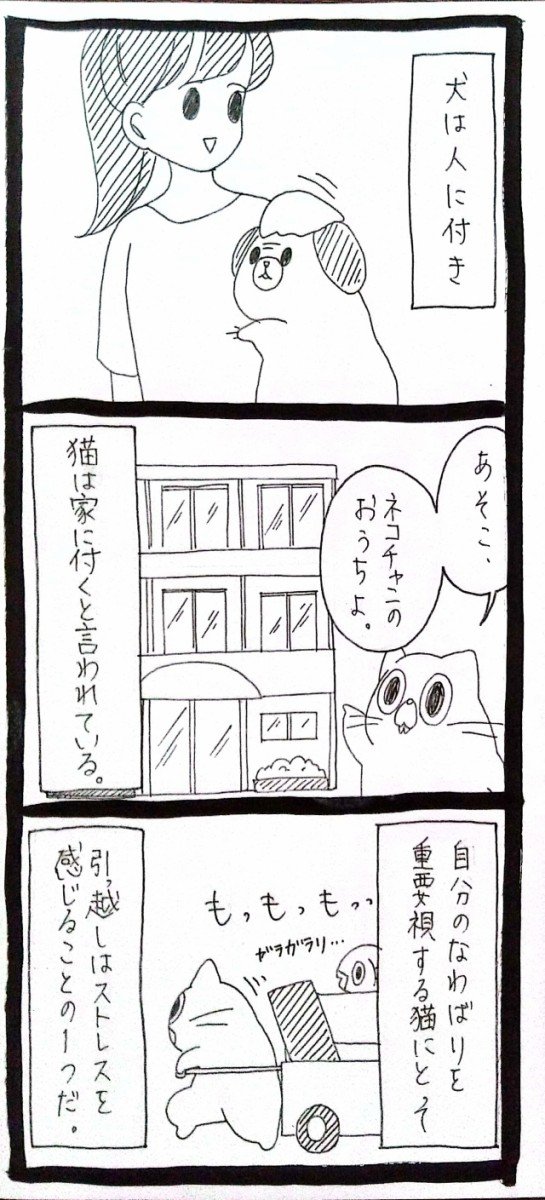 犬は人に付き
あそこ、
ネコチャンの
おうちよ。
猫は家に付くと言われている。
自分のなわばりを
重要視する猫にとって
もっもっもっ
ガラガラリ…
引っ越しはストレスを
感じることの1つだ。